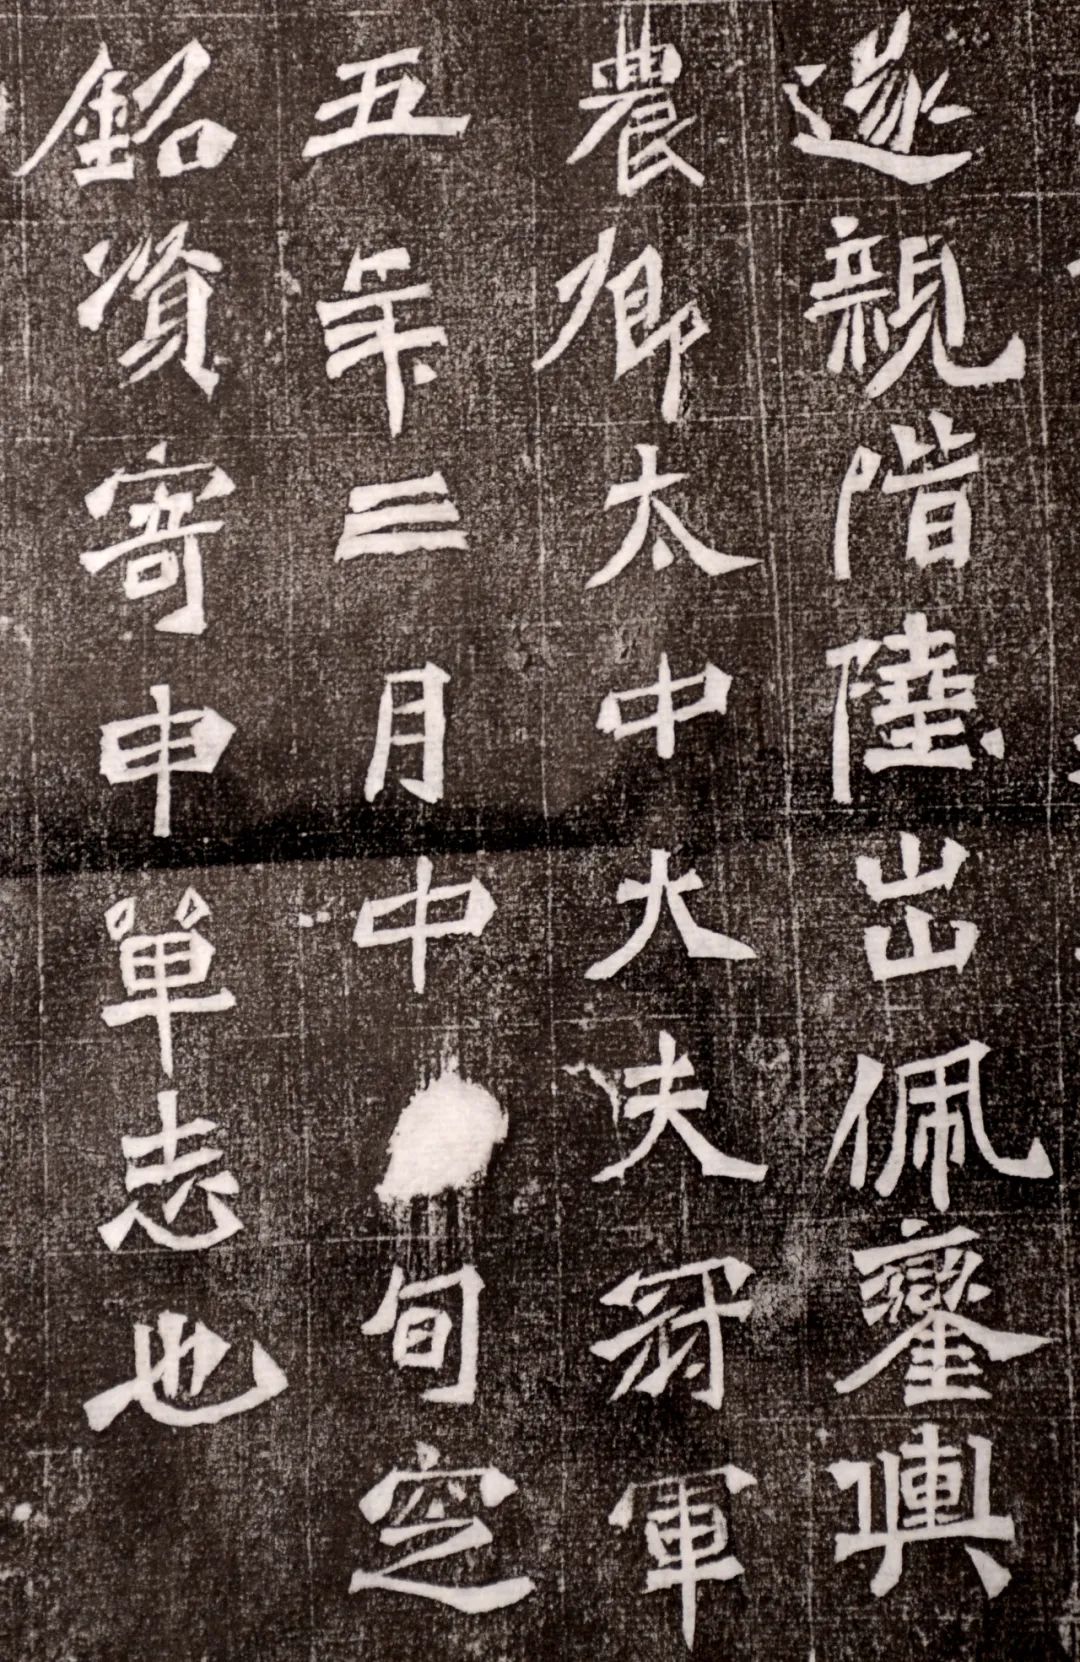 遂親階陸出佩鑾輿
農卿太中大夫冠軍
五年三月中旬窆
銘資寄申單志也